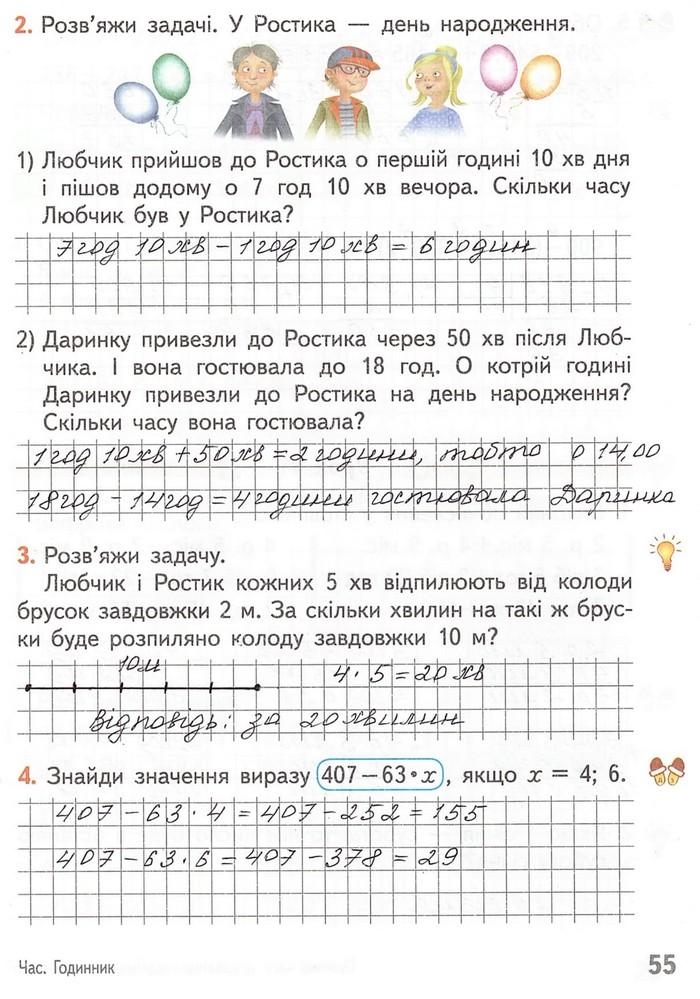 2. Розв'яжи задачі. У Ростика — день народження.
1) Любчик прийшов до Ростика о першій годині 10 хв дня
і пішов додому о 7 год 10 хв вечора. Скільки часу
Любчик був у Ростика?
7 год 10 хв – 1 год 10 хв = 6 годин
2) Даринку привезли до Ростика через 50 хв після Люб-
чика. І вона гостювала до 18 год. О котрій годині
Даринку привезли до Ростика на день народження?
Скільки часу вона гостювала?
1 год 10 хв + 50 хв = 2 години, тобто о 14,00
18 год – 14 год = 4 години гостювала Даринка
3. Розв'яжи задачу.
Любчик і Ростик кожних 5 хв відпилюють від колоди
брусок завдовжки 2 м. За скільки хвилин на такі ж брус-
ки буде розпиляно колоду завдовжки 10 м?
10 м 4 · 5 = 20 хв
Відповідь: за 20 хвилин
4. Знайди значення виразу 407 – 63 • x , якщо x = 4; 6.
407 – 63 · 4 = 407 – 252 = 155
407 – 63 · 6 = 407 – 378 = 29
Час. Годинник 55